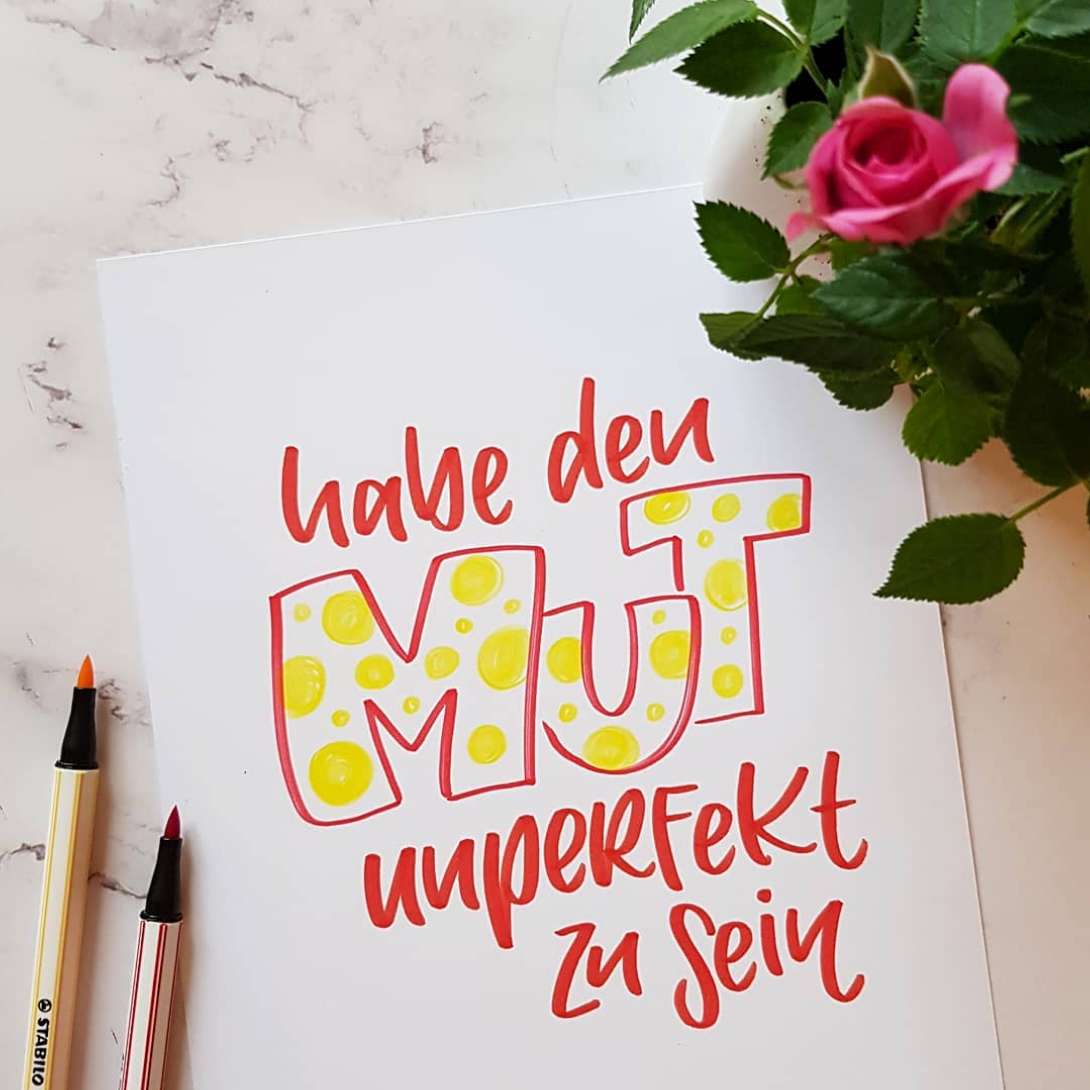 habe den
MUT
unperfekt
zu sein
STABILO